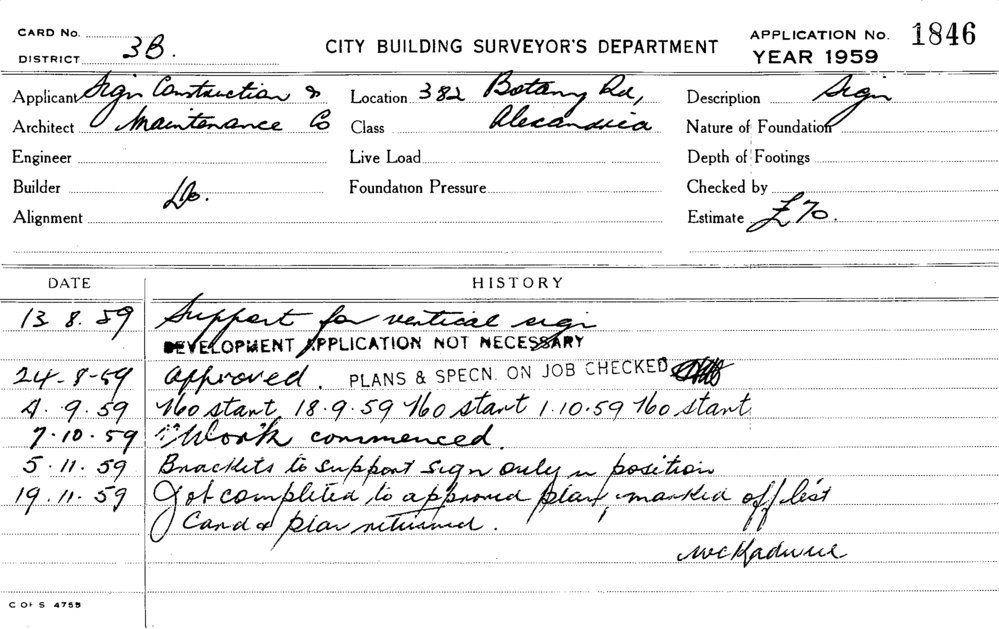 CARD No.
DISTRICT 3B.
CITY BUILDING SURVEYOR'S DEPARTMENT
APPLICATION No. 1846
YEAR 1959
Applicant Sign Construction &
Architect Maintenance Co
Engineer
Builder Do.
Alignment
Location 382 Botany Rd,
Class Alexandria
Live Load
Foundation Pressure
Description Sign
Nature of Foundation
Depth of Footings
Checked by
Estimate £70.
DATE HISTORY
13.8.59 Support for vertical sign
DEVELOPMENT APPLICATION NOT NECESSARY
24-8-59 Approved. PLANS & SPECN. ON JOB CHECKED
4.9.59 No start 18.9.59 No start 1.10.59 No start
7.10.59 Work commenced
5.11.59 Brackets to support sign only in position
19.11.59 Job completed to approved plan, marked off list
Card & plan returned.
C OF S 4755